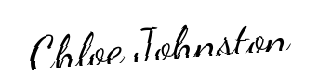 Chloe Johnston